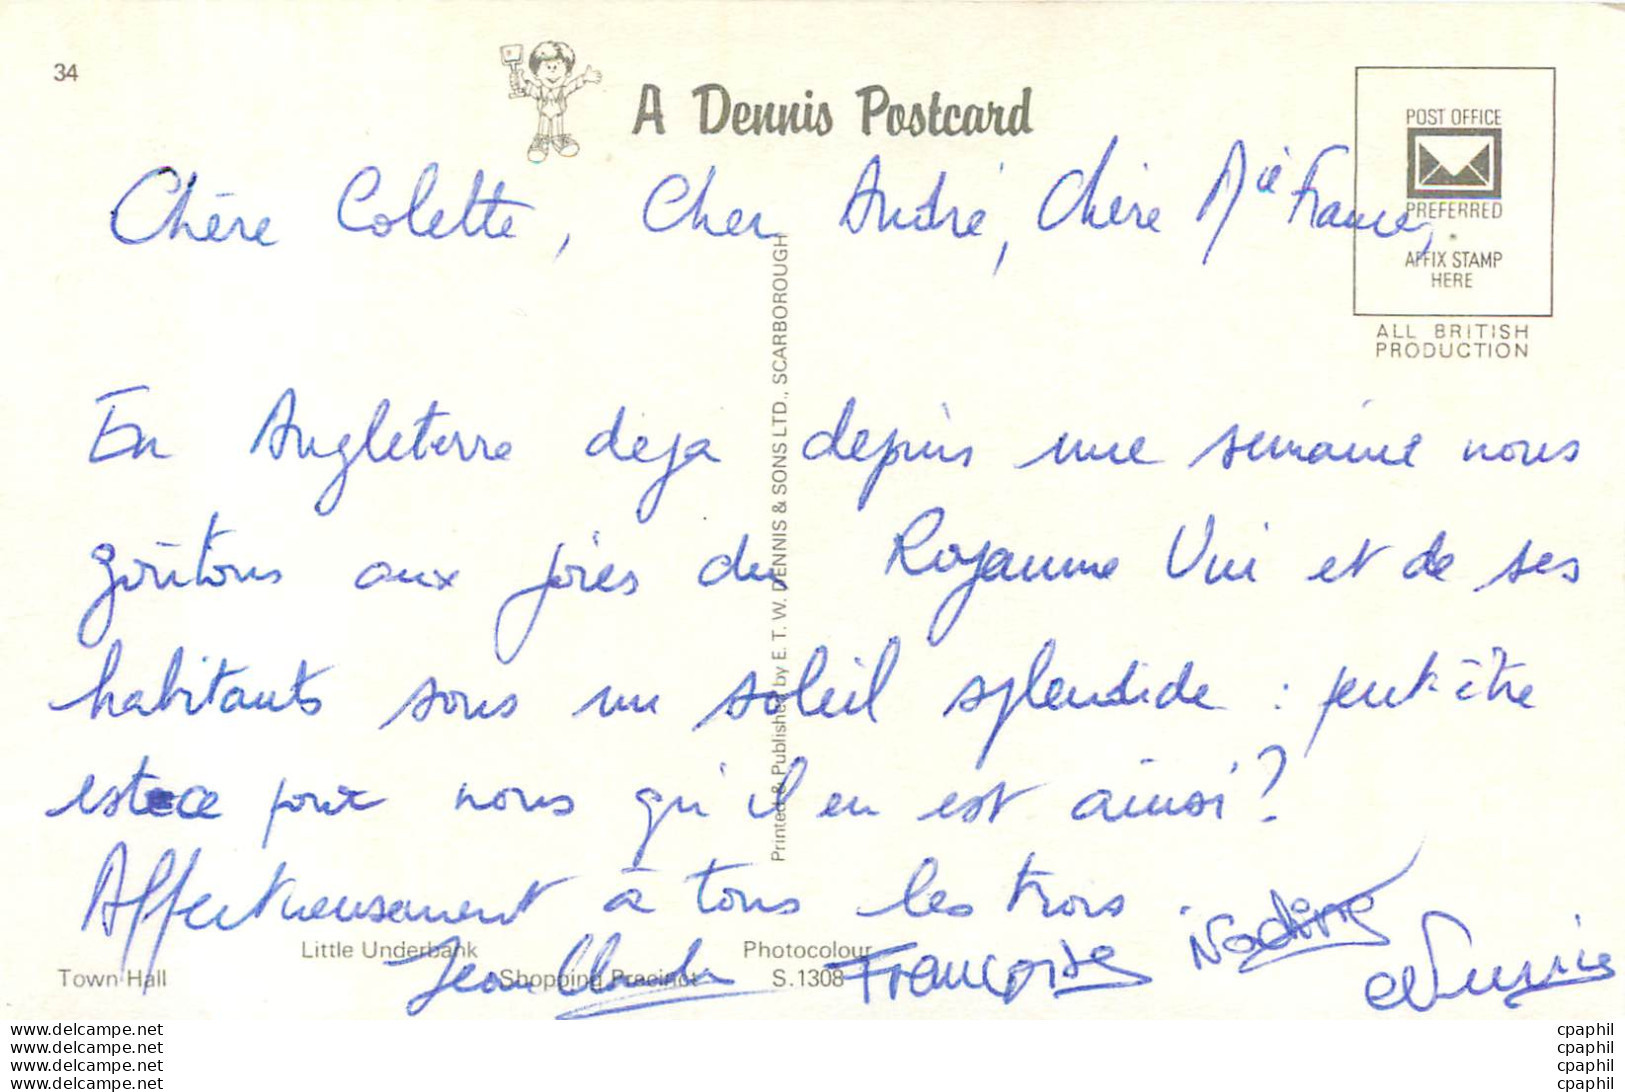 34
A Dennis Postcard
POST OFFICE
PREFERRED
AFFIX STAMP
HERE
ALL BRITISH
PRODUCTION
Chère Colette, Cher André, Chère Mie France,
En Angleterre deja depuis une semaine nous
goûtons aux joies du Royaume Uni et de ses
habitants sous un soleil splendide : peut-être
est ce pour nous qu'il en est ainsi ?
Affectueusement à tous les trois.
Jean Claude Françoise Nadine
Printed & Published by E. T. W. DENNIS & SONS LTD., SCARBOROUGH
Little Underbank Photocolour
Town Hall Shopping Precinct S.1308
www.delcampe.net cpaphil
www.delcampe.net cpaphil
www.delcampe.net cpaphil
www.delcampe.net cpaphil